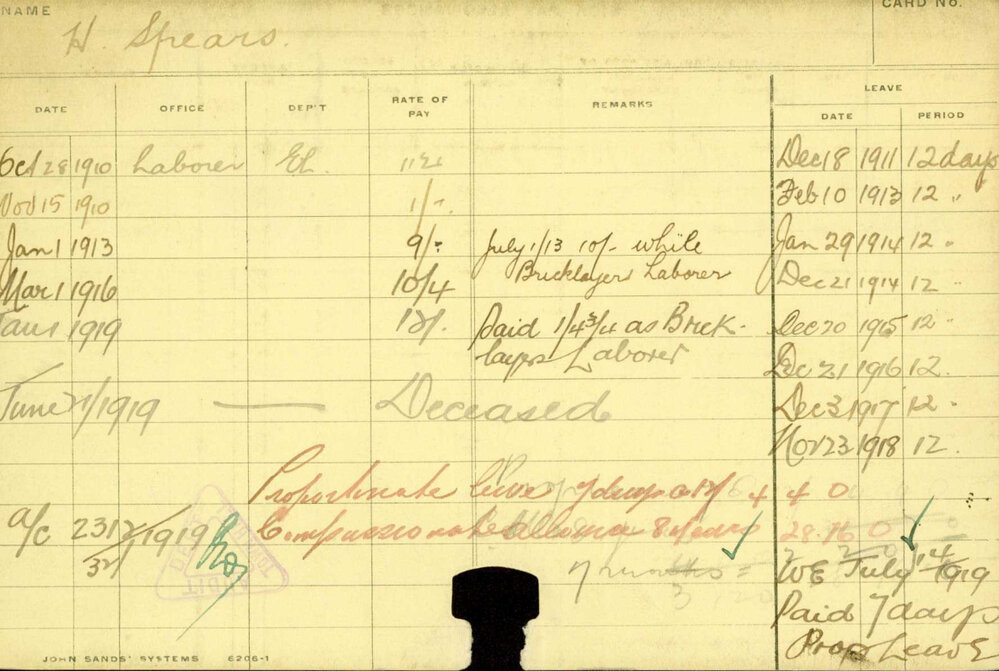 NAME
CARD NO.
H. Spears.
DATE OFFICE DEP'T RATE OF PAY REMARKS LEAVE
DATE PERIOD
Oct 28 1910 Laborer El. Dec 18 1911 12 days
Nov 15 1910 Feb 10 1913 12 "
Jan 1 1913 9/- July 1/13 10/- while Jan 29 1914 12 "
Bricklayers Laborer
Mar 1 1916 10/4 Dec 21 1914 12 "
Jan 1 1919 12/- Paid 1/4¾ as Brick- Dec 20 1915 12 "
layers Laborer
Dec 21 1916 12 "
June 21/1919 — Deceased Dec 3 1917 12 "
Nov 23 1918 12 "
Proportionate leave 7 days @ 12/- 4 4 0
a/c 2312/1919 Compassionate Allowance 8 years 28 16 0
7 months =
WE July 14 1919
Paid 7 days
Prop Leave
JOHN SANDS' SYSTEMS 6206-1